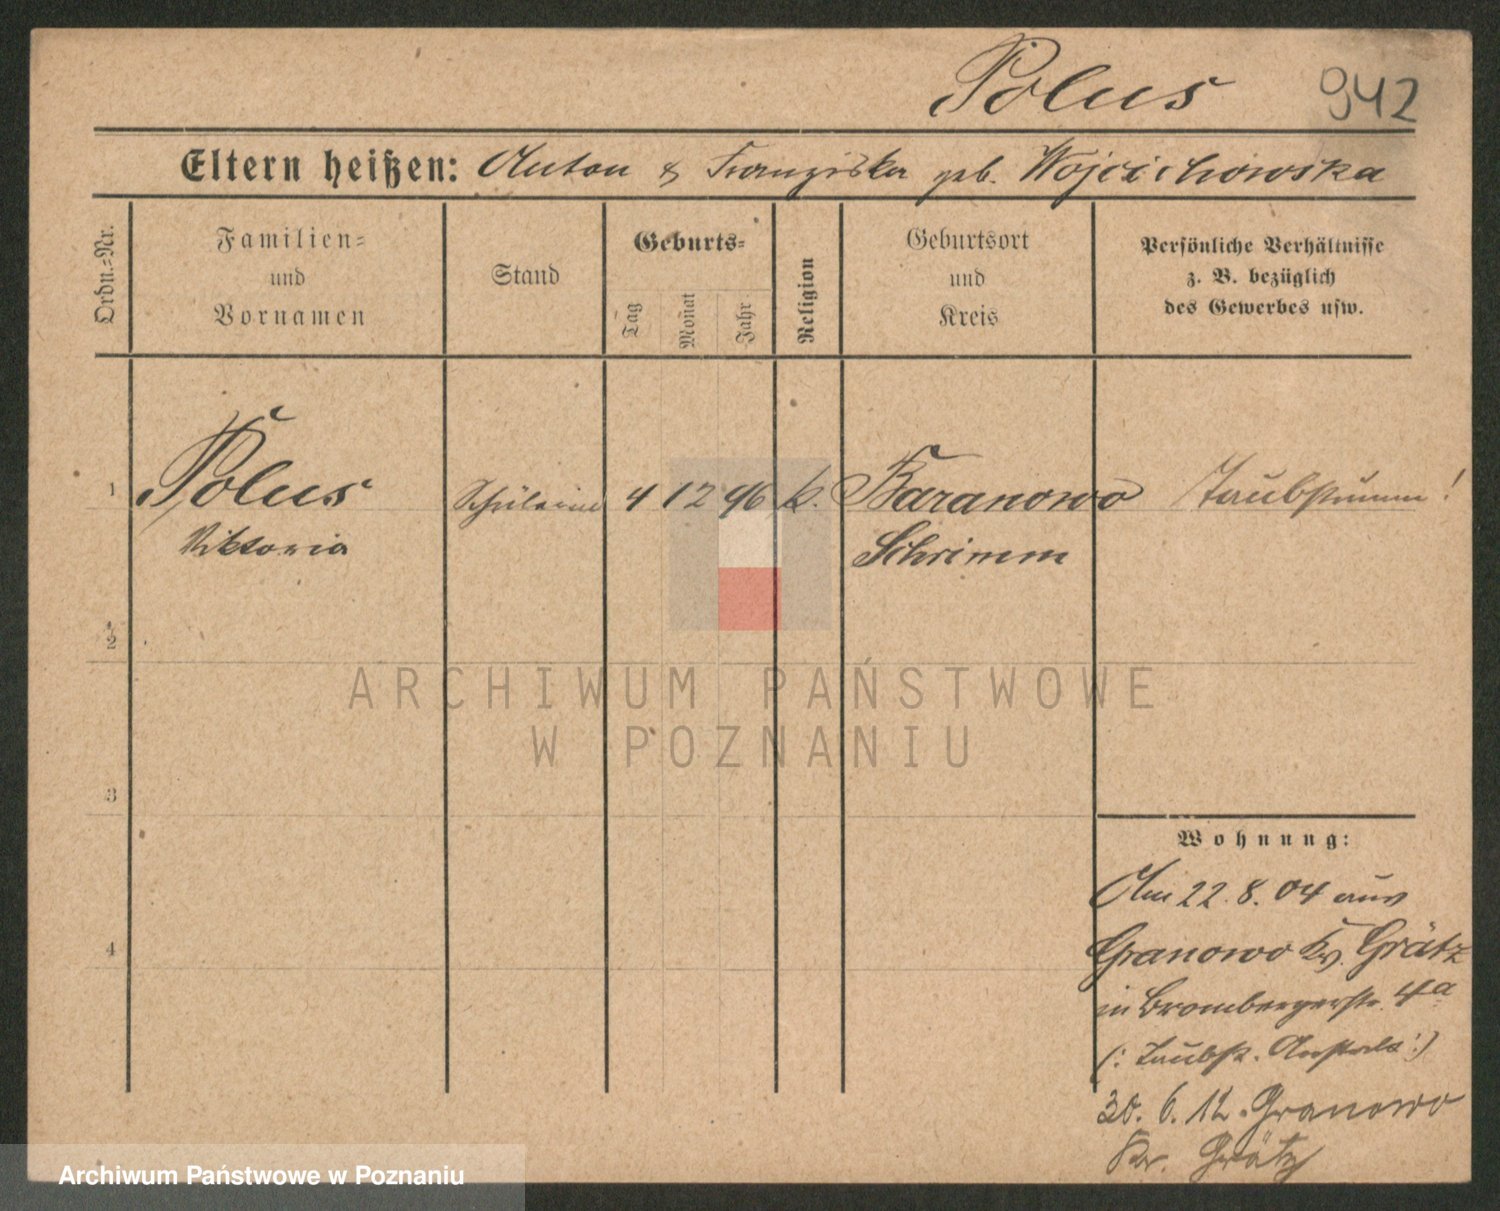 Polus 942
Eltern heißen: Anton & Franziska geb. Wojcichowska
Ordn.-Nr.
Familien-
und
Vornamen
Stand
Geburts-
Tag
Monat
Jahr
Religion
Geburtsort
und
Kreis
Persönliche Verhältnisse
z. B. bezüglich
des Gewerbes usw.
1 Polus Schülerin 4 12 96 k. Baranowo Taubstumm!
Viktoria Schrimm
2
ARCHIWUM PAŃSTWOWE
W POZNANIU
3
Wohnung:
Am 22.8.04 aus
Granowo Kr. Grätz
in Brombergerstr. 4a
(: Taubst. Anstalt :)
4
30.6.12. Granowo
Kr. Grätz
Archiwum Państwowe w Poznaniu